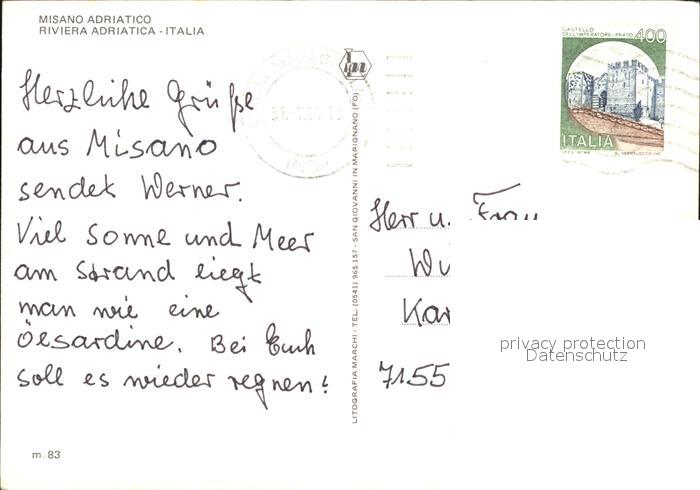 MISANO ADRIATICO
RIVIERA ADRIATICA - ITALIA
Herzliche Grüße
aus Misano
sendet Werner.
Viel Sonne und Meer
am Strand liegt
man wie eine
Ölsardine. Bei Euch
soll es wieder regnen!
m. 83
LITOGRAFIA MARCHI - TEL. (0541) 965 157 - SAN GIOVANNI IN MARIGNANO (FO)
CASTELLO
DELL'IMPERATORE - PRATO
400
ITALIA
Herr u. Frau
Wu
Kar
7155
privacy protection
Datenschutz